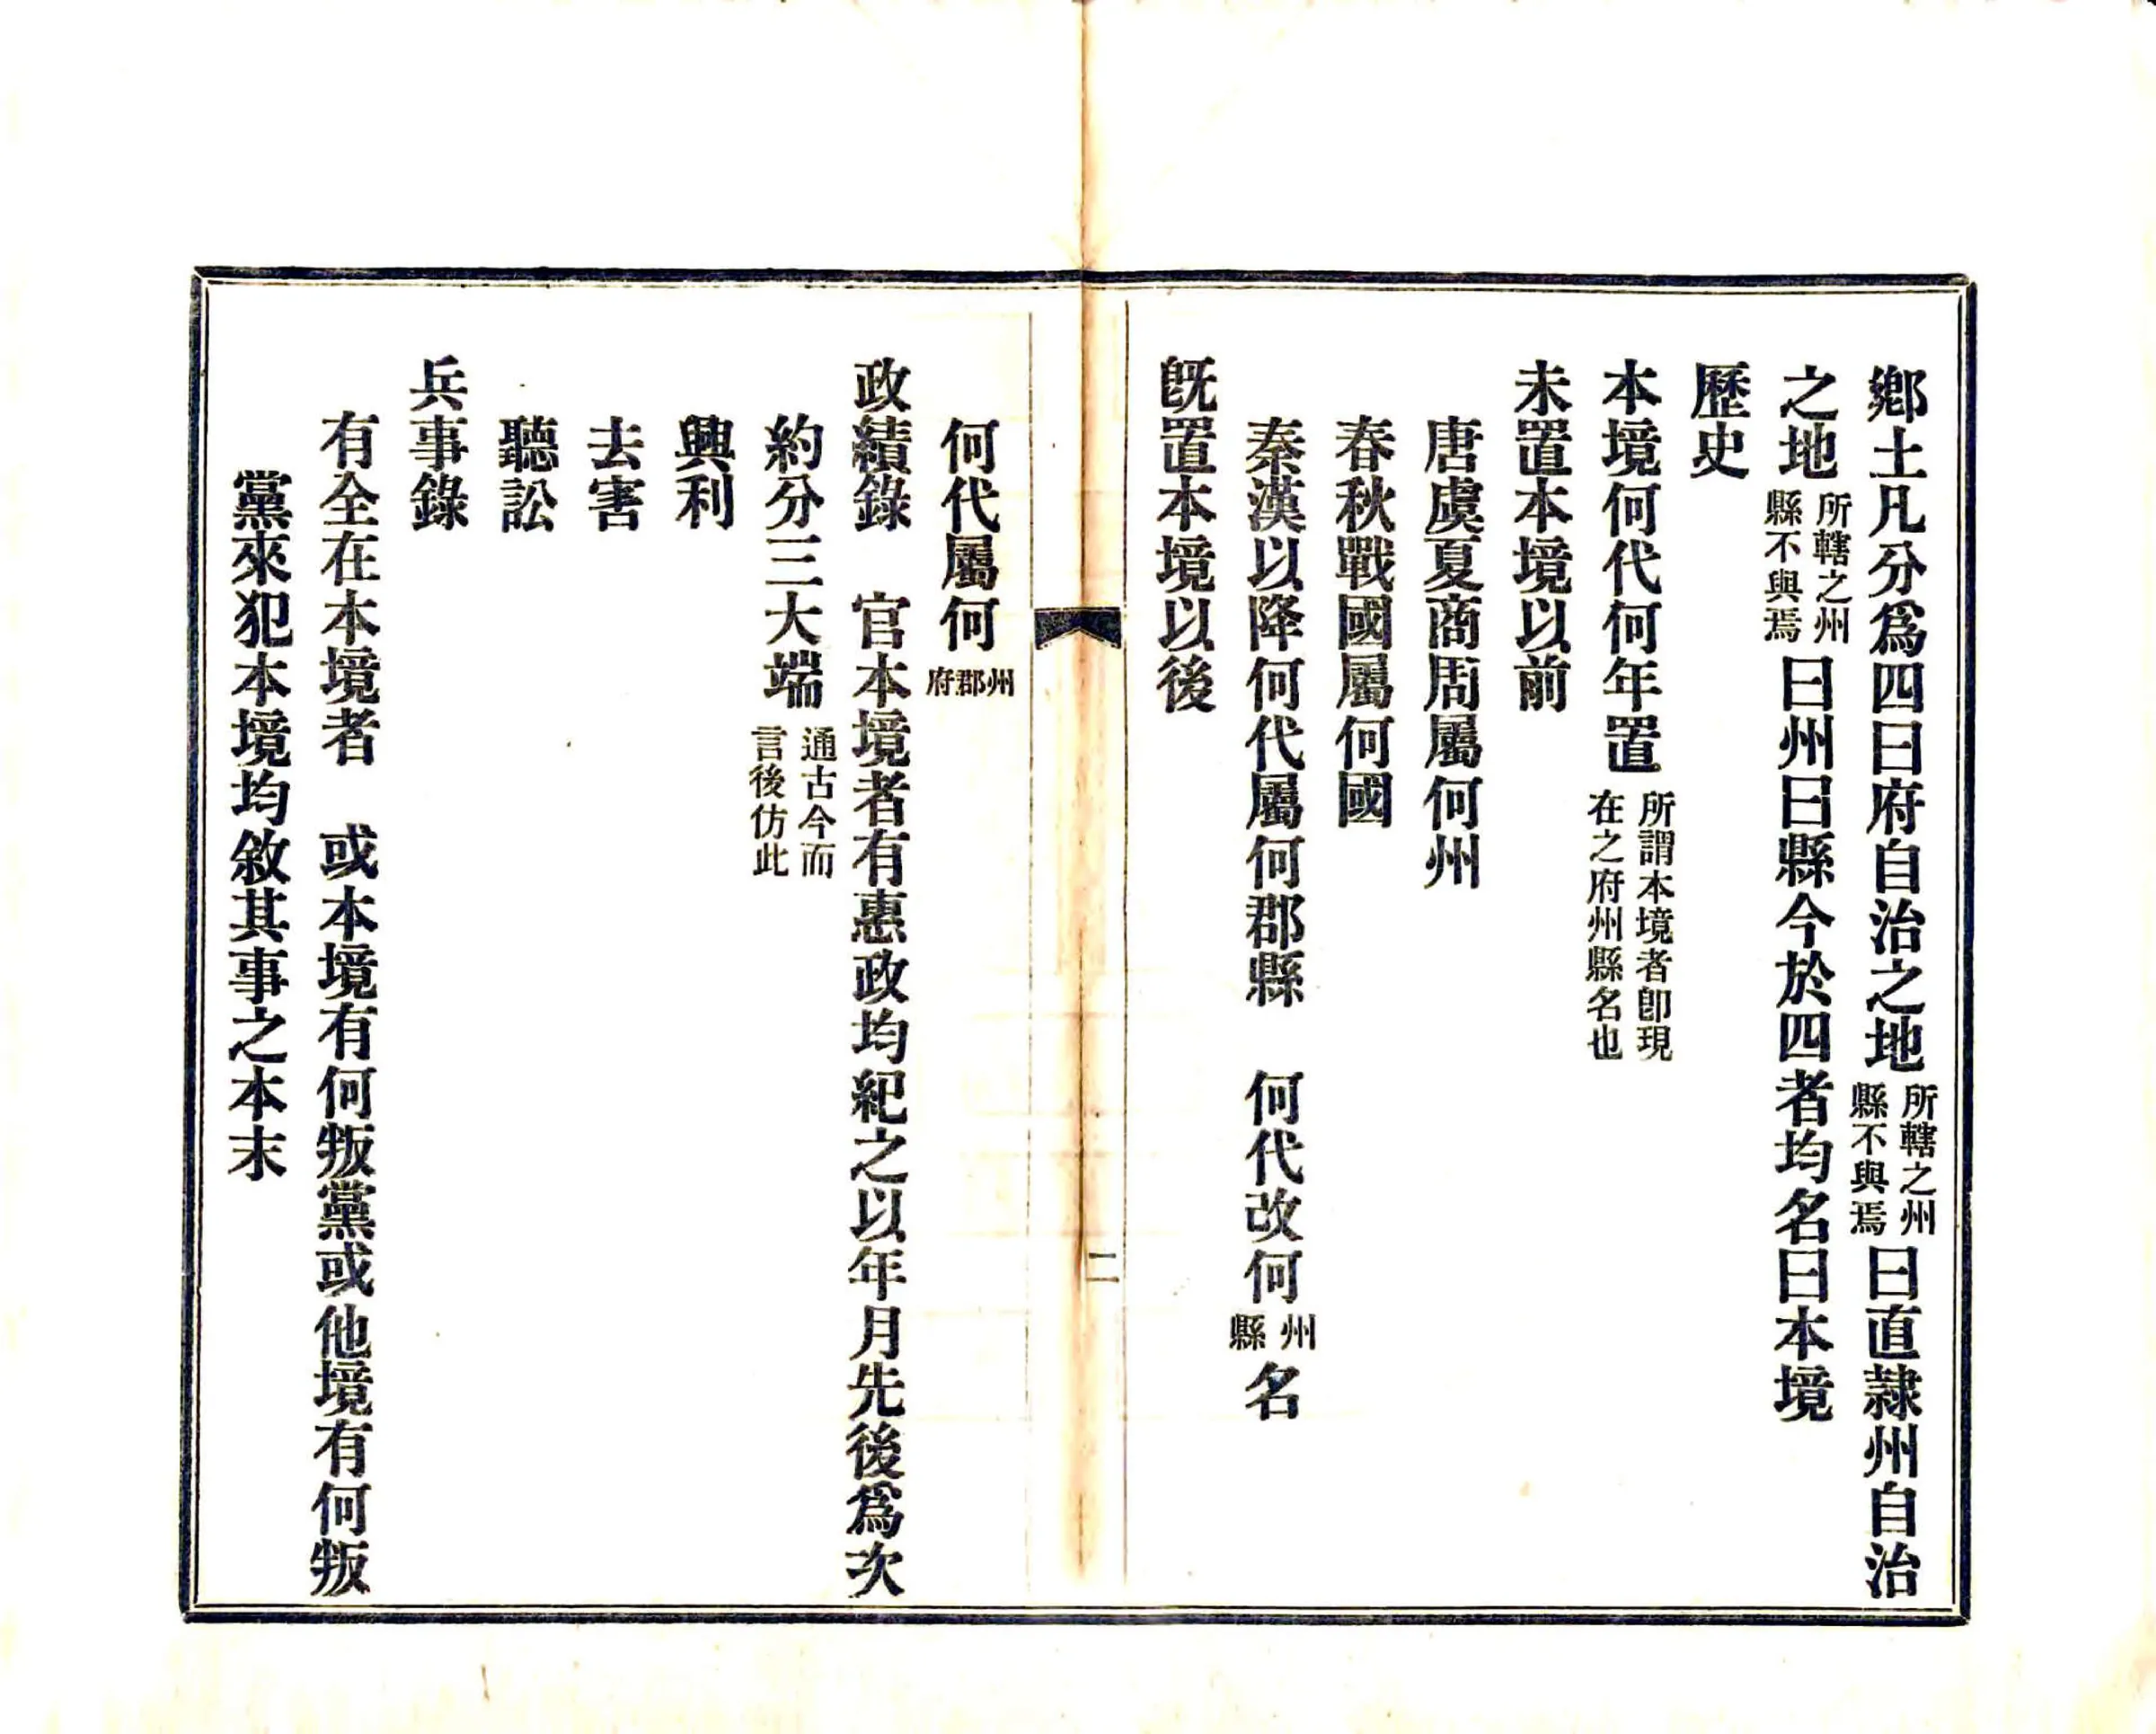 鄕土凡分爲四曰府自治之地所轄之州縣不與焉曰直隷州自治
之地所轄之州縣不與焉曰州曰縣今於四者均名曰本境
歷史
本境何代何年置所謂本境者卽現在之府州縣名也
未置本境以前
唐虞夏商周屬何州
春秋戰國屬何國
秦漢以降何代屬何郡縣　何代改何州縣名
旣置本境以後
二
何代屬何州郡府
政績錄　官本境者有惠政均紀之以年月先後爲次
約分三大端通古今而言後仿此
興利
去害
聽訟
兵事錄
有全在本境者　或本境有何叛黨或他境有何叛
黨來犯本境均敘其事之本末